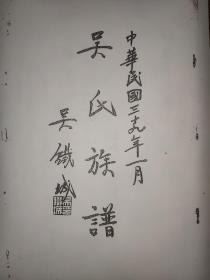 中華民國三十九年一月
吳氏族譜
吳鐵城